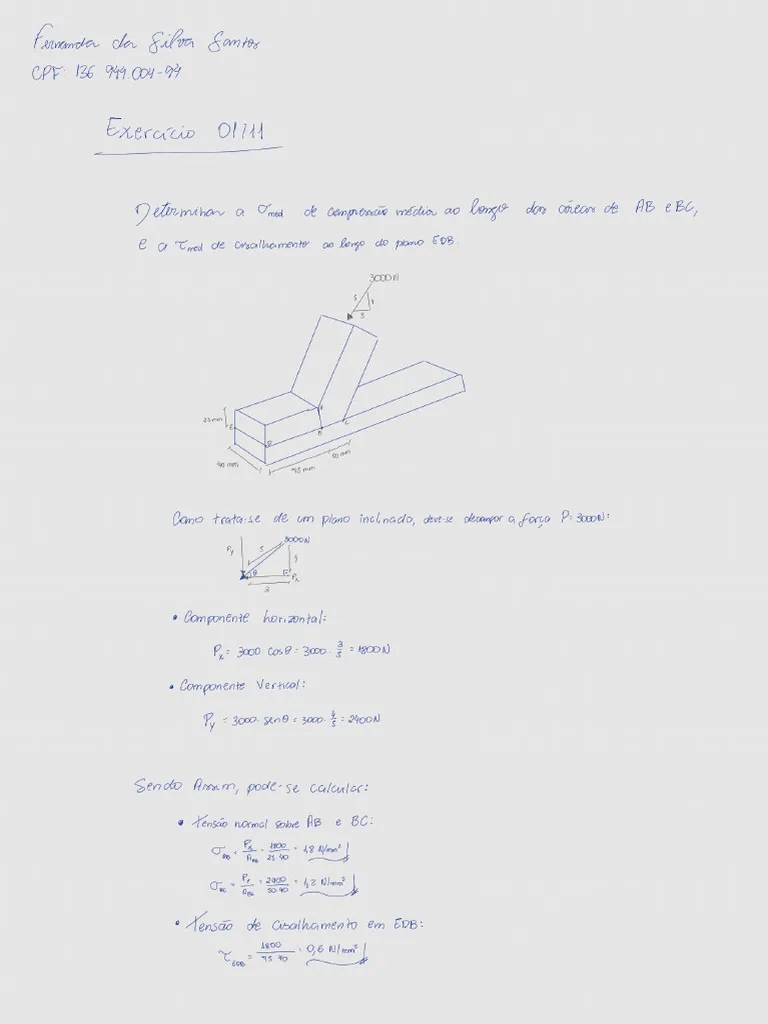 Fernanda da Silva Santos
CPF: 136 949.004-94
Exercício 01/11
Determinar a σmed de compressão média ao longo das áreas de AB e BC,
e a τmed de cisalhamento ao longo do plano EDB.
3000 N
5
3
25 mm
E
D
B
C
40 mm
75 mm
50 mm
Como trata-se de um plano inclinado, deve-se decompor a força P: 3000N:
3000N
Py
5
4
θ
Px
3
• Componente horizontal:
Px = 3000 · cos θ = 3000 · 3/5 = 1800 N
• Componente Vertical:
Py = 3000 · sen θ = 3000 · 4/5 = 2400 N
Sendo Assim, pode-se calcular:
• Tensão normal sobre AB e BC:
σAB = Px/AAB = 1800/25·40 = 1,8 N/mm²
σBC = Py/ABC = 2400/50·40 = 1,2 N/mm²
• Tensão de cisalhamento em EDB:
τEDB = 1800/75·40 = 0,6 N/mm²